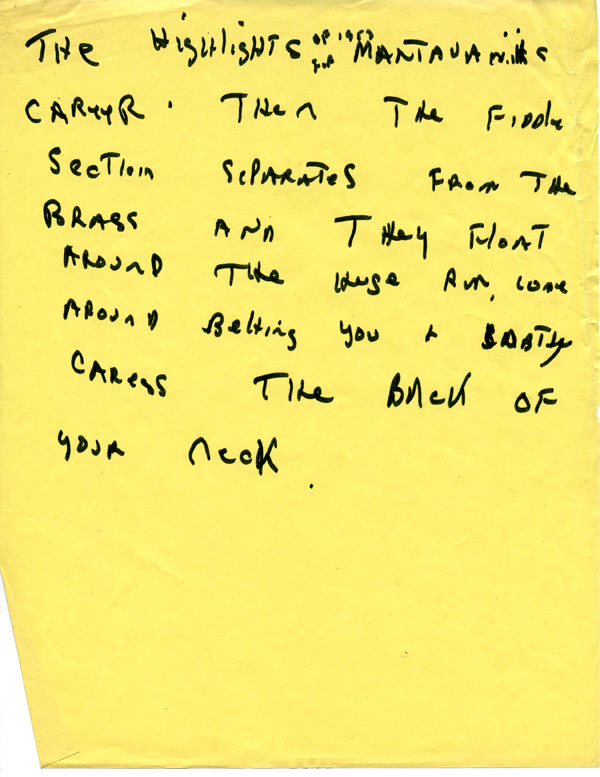 THE HIGHLIGHTS OF MANTAVANI'S
CAREER. THEN THE FIDDLE
SECTION SEPARATES FROM THE
BRASS AND THEY FLOAT
AROUND THE HUGE COME
AROUND BEHING YOU +
CARESS THE BACK OF
YOUR NECK.